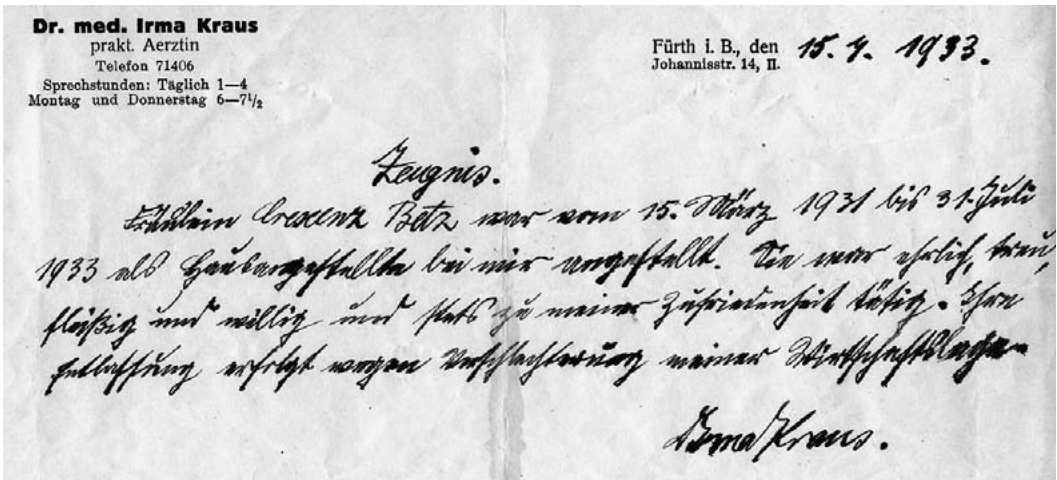 Dr. med. Irma Kraus
prakt. Aerztin
Telefon 71406
Sprechstunden: Täglich 1—4
Montag und Donnerstag 6—7½
Fürth i. B., den 15. 7. 1933.
Johannisstr. 14, II.
Zeugnis.
Fräulein Crescenz Betz war vom 15. März 1931 bis 31. Juli
1933 als Hausangestellte bei mir angestellt. Sie war ehrlich, treu,
fleißig und willig und stets zu meiner Zufriedenheit tätig. Ihre
Entlassung erfolgt wegen Verschlechterung meiner Wirtschaftslage.
Irma Kraus.